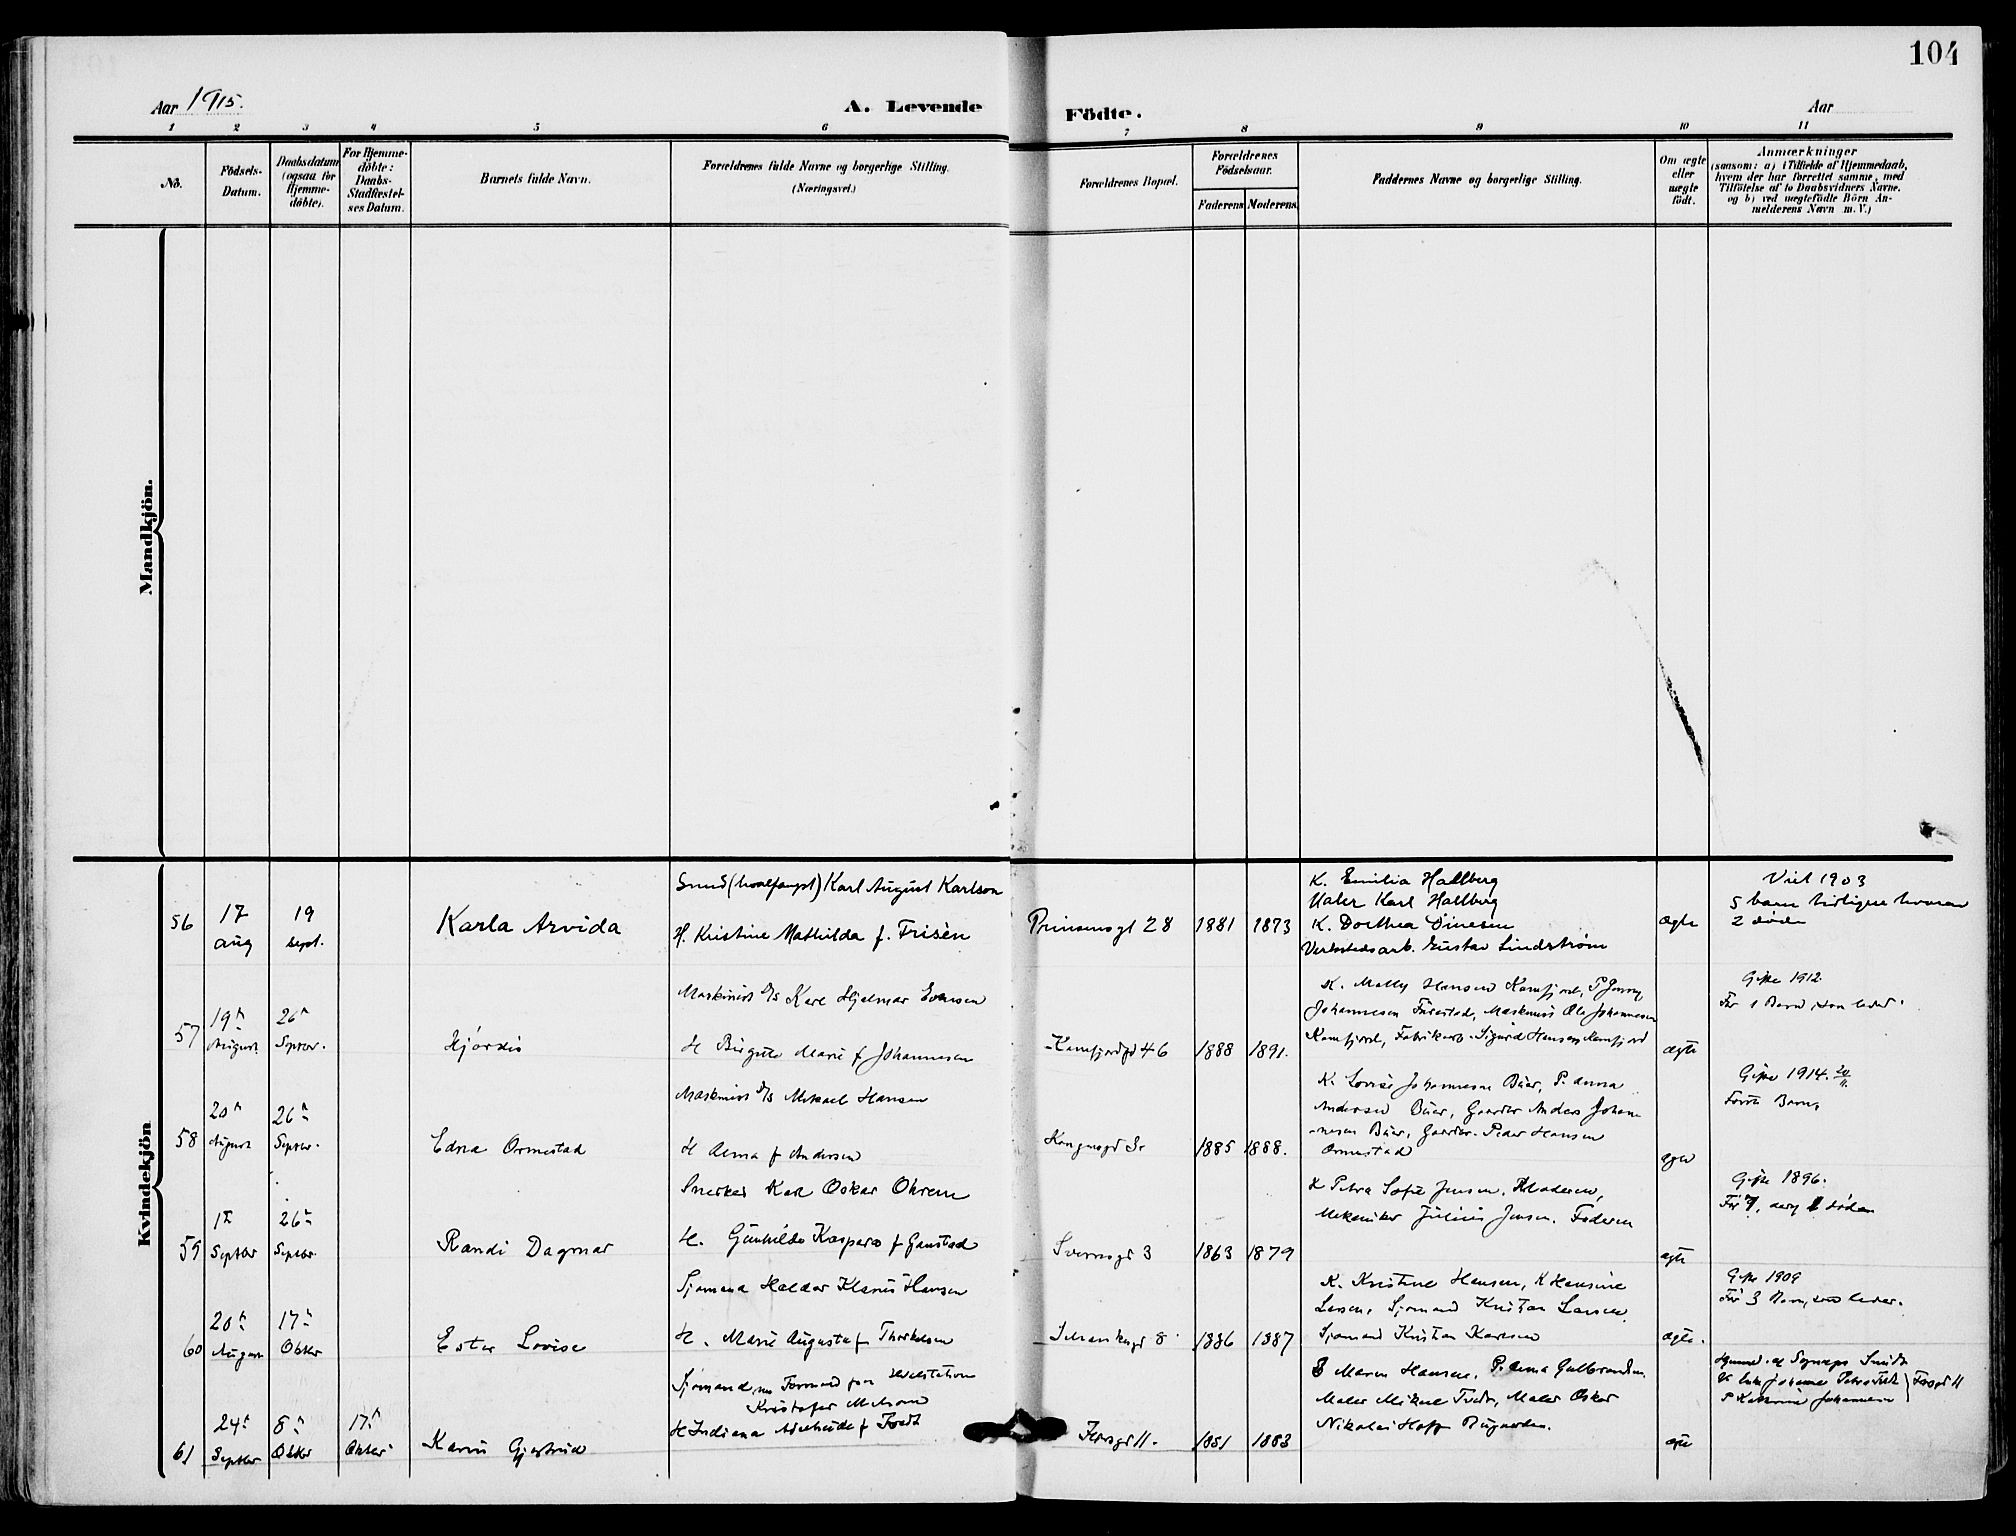 104
Aar 1915.
A. Levende
Födte.
Aar
1 2 3 4 5 6 7 8 9 10 11
No.
Födsels-
Datum.
Daabsdatum
(ogsaa for
Hjemme-
döbte).
For Hjemme-
döbte:
Daabs-
Stadfæstel-
ses Datum.
Barnets fulde Navn.
Forældrenes fulde Navne og borgerlige Stilling.
(Næringsvei.)
Forældrenes Bopæl.
Forældrenes
Födselsaar.
Faderens
Moderens
Faddernes Navne og borgerlige Stilling.
Om ægte
eller
uægte
födt.
Anmærkninger
(saasom: a) i Tilfælde af Hjemmedaab,
hvem der har forrettet samme, med
Tilföielse af to Daabsvidners Navne,
og b) ved uægtefödte Börn An-
melderens Navn m.V.)
Mandkjön.
Kvindekjön
56
17
aug
19
sept.
Karla Arvida
Smed (hvalfangst) Karl August Karlson
H. Kristine Mathilda f. Frisèn
Prinsensgt 28
1881
1873
K. Emilia Hallberg
Maler Karl Hallberg
K. Dorthea Dinesen
Verkstedsarb. Gustav Lindström
ægte
Viet 1903
5 barn tidligere hvoraf
2 døde
57
19de
August
26de
Septbr.
Hjórdis
Maskinist Karl Hjelmar Evensen
H Birgite Marie f Johannesen
Kamfjordgd 46
1888
1891.
K. Molly Hansen Kamfjord, P Jenny
Johannesen Furustad, Maskinist Ole Johannesen
Kamfjord, Fabrikarb. Sigurd Hansen, Kamfjord
ægte
Gifte 1912
Før 1 Barn, som lever.
58
20de
August
26de
Septbr.
Edna Ormestad
Maskinist Mikael Hansen
H Anna f Andersen
Kongensgd
1885
1888.
K. Lovise Johannesen Buer, P. Anna
Andersen Buer, Gaardbr Anders Johan-
nesen Buer, Gaardbr. Peder Hansen
Ormestad
ægte
Gifte 1914. 20/11.
Første Barn,
59
1ste
Septbr
26de
Septbr.
Randi Dagmar
Snedker Karl Oskar Ohren
H. Gunhilde Kaspara f Gaustad
Sverresgd 3
1863
1879
K Petra Sofie Jensen, Moderen,
Mekaniker Julius Jensen. Faderen
ægte
Gifte 1896.
Før 7, deraf 1 døde
60
20de
August
17de
Oktbr
Ester Lovise
Sjømand Haldor Klaus Hansen
H. Marie Augusta f Thorkilsen
1886
1887
K. Kristine Hansen, K Hansine
Larsen, Sjømand Kristian Larsen,
Sjømand Kristian Karlsen
ægte.
Gifte 1909
Før 3 Børn, som lever.
61
24de
Septbr
8de
Oktbr
17de
Oktbr
Karin Gjertrud
Sjømand, nu Formand paa
Kristofer
H Indiana Adelheide f Tvedt
11.
1881
1883
Maren Hansen, P. Anna Gulbrandsen
Maler Mikael Tvedt, Maler Oskar
Nikolai Hoff Bugaarden.
ægte
Hjemmed. af Sognepr. Smidt
Johanne Petra Tvedt
P Kathrine Johannesen